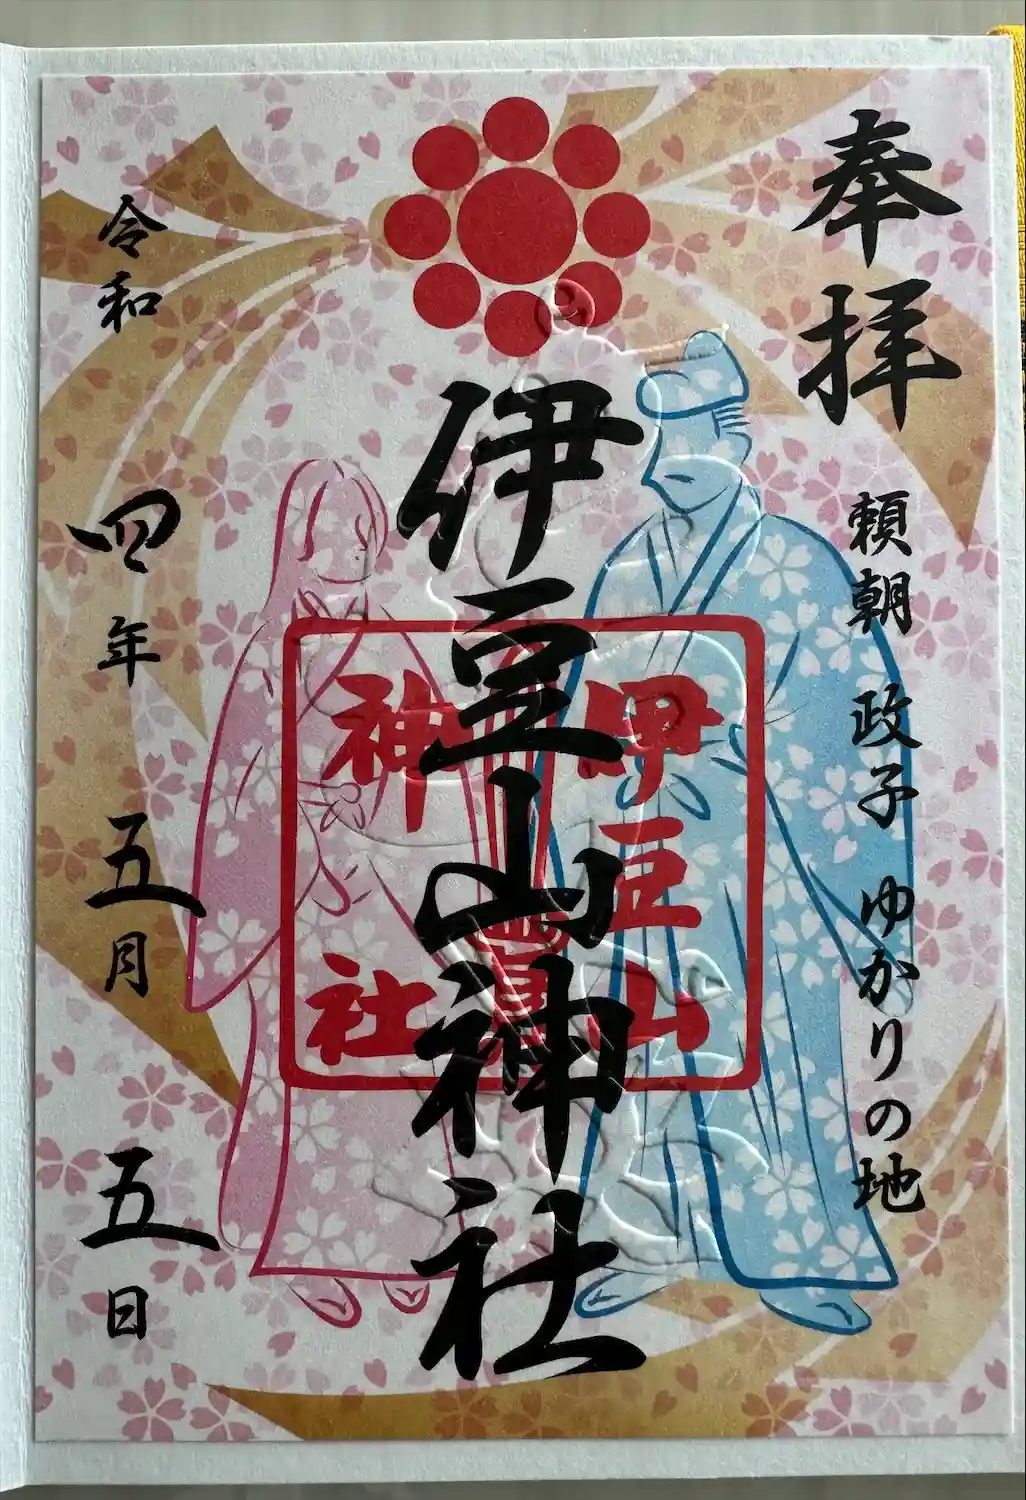 奉拝
頼朝 政子 ゆかりの地
伊豆山神社
伊豆山
神社
令和四年五月五日